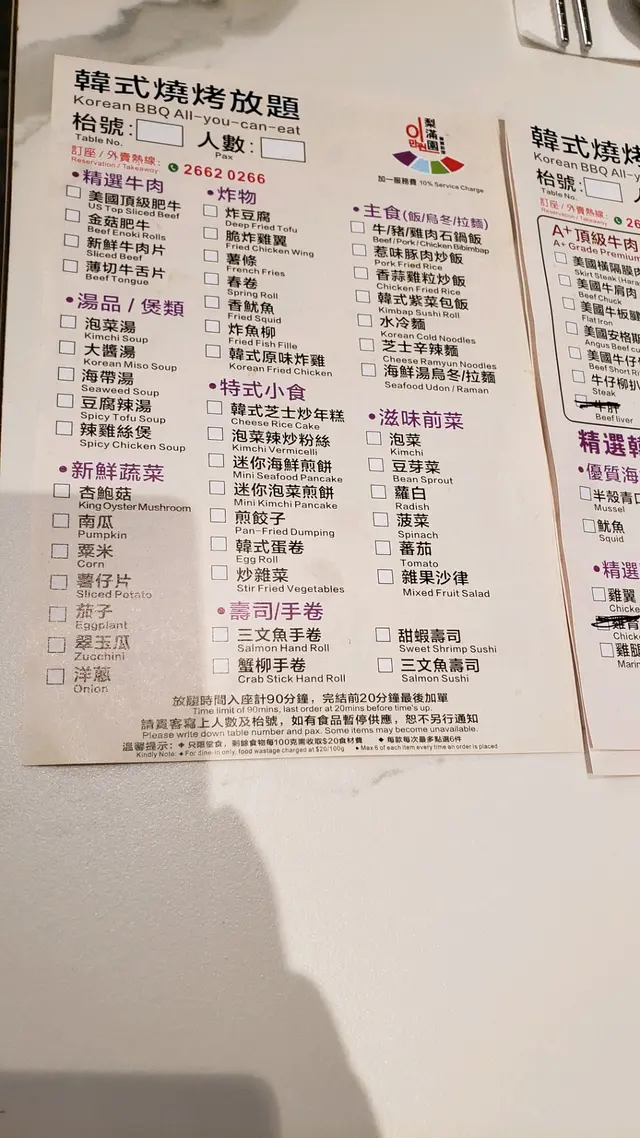 韓式燒烤放題
Korean BBQ All-you-can-eat
枱號:
Table No.
人數:
Pax
訂座/外賣熱線:
Reservation / Takeaway
2662 0266
梨滿園
加一服務費 10% Service Charge
•精選牛肉
美國頂級肥牛
US Top Sliced Beef
金菇肥牛
Beef Enoki Rolls
新鮮牛肉片
Sliced Beef
薄切牛舌片
Beef Tongue
•湯品/煲類
泡菜湯
Kimchi Soup
大醬湯
Korean Miso Soup
海帶湯
Seaweed Soup
豆腐辣湯
Spicy Tofu Soup
辣雞絲煲
Spicy Chicken Soup
•新鮮蔬菜
杏鮑菇
King Oyster Mushroom
南瓜
Pumpkin
粟米
Corn
薯仔片
Sliced Potato
茄子
Eggplant
翠玉瓜
Zucchini
洋蔥
Onion
•炸物
炸豆腐
Deep Fried Tofu
脆炸雞翼
Fried Chicken Wing
薯條
French Fries
春卷
Spring Roll
香魷魚
Fried Squid
炸魚柳
Fried Fish Fille
韓式原味炸雞
Korean Fried Chicken
•特式小食
韓式芝士炒年糕
Cheese Rice Cake
泡菜辣炒粉絲
Kimchi Vermicelli
迷你海鮮煎餅
Mini Seafood Pancake
迷你泡菜煎餅
Mini Kimchi Pancake
煎餃子
Pan-Fried Dumping
韓式蛋卷
Egg Roll
炒雜菜
Stir Fried Vegetables
•主食(飯/烏冬/拉麵)
牛/豬/雞肉石鍋飯
Beef / Pork / Chicken Bibimbap
惹味豚肉炒飯
Pork Fried Rice
香蒜雞粒炒飯
Chicken Fried Rice
韓式紫菜包飯
Kimbap Sushi Roll
水冷麵
Korean Cold Noodles
芝士辛辣麵
Cheese Ramyun Noodles
海鮮湯烏冬/拉麵
Seafood Udon / Raman
•滋味前菜
泡菜
Kimchi
豆芽菜
Bean Sprout
蘿白
Radish
菠菜
Spinach
蕃茄
Tomato
雜果沙律
Mixed Fruit Salad
•壽司/手卷
三文魚手卷
Salmon Hand Roll
蟹柳手卷
Crab Stick Hand Roll
甜蝦壽司
Sweet Shrimp Sushi
三文魚壽司
Salmon Sushi
放題時間入座計90分鐘，完結前20分鐘最後加單
Time limit of 90mins, last order at 20mins before time's up.
請貴客寫上人數及枱號，如有食品暫停供應，恕不另行通知
Please write down table number and pax. Some items may become unavailable.
溫馨提示: ◆ 只限堂食，剩餘食物每100克需收取$20食材費 ◆ 每款每次最多點選6件
Kindly Note: ◆ For dine-in only, food wastage charged at $20/100g ◆ Max 6 of each item every time an order is placed
韓式燒
Korean BBQ
枱號:
Table No.
訂座/外賣熱線:
Reservation / Takeaway
A+頂級牛肉
A+ Grade Premium
美國橫隔膜
Skirt Steak
美國牛肩肉
Beef Chuck
美國牛板腱
Flat Iron
美國安格斯
Angus Beef
美國牛仔
Beef Short
牛仔柳扒
Steak
牛肝
Beef liver
精選
•優質海
半殼青口
Mussel
魷魚
Squid
•精選
雞翼
雞
雞腿